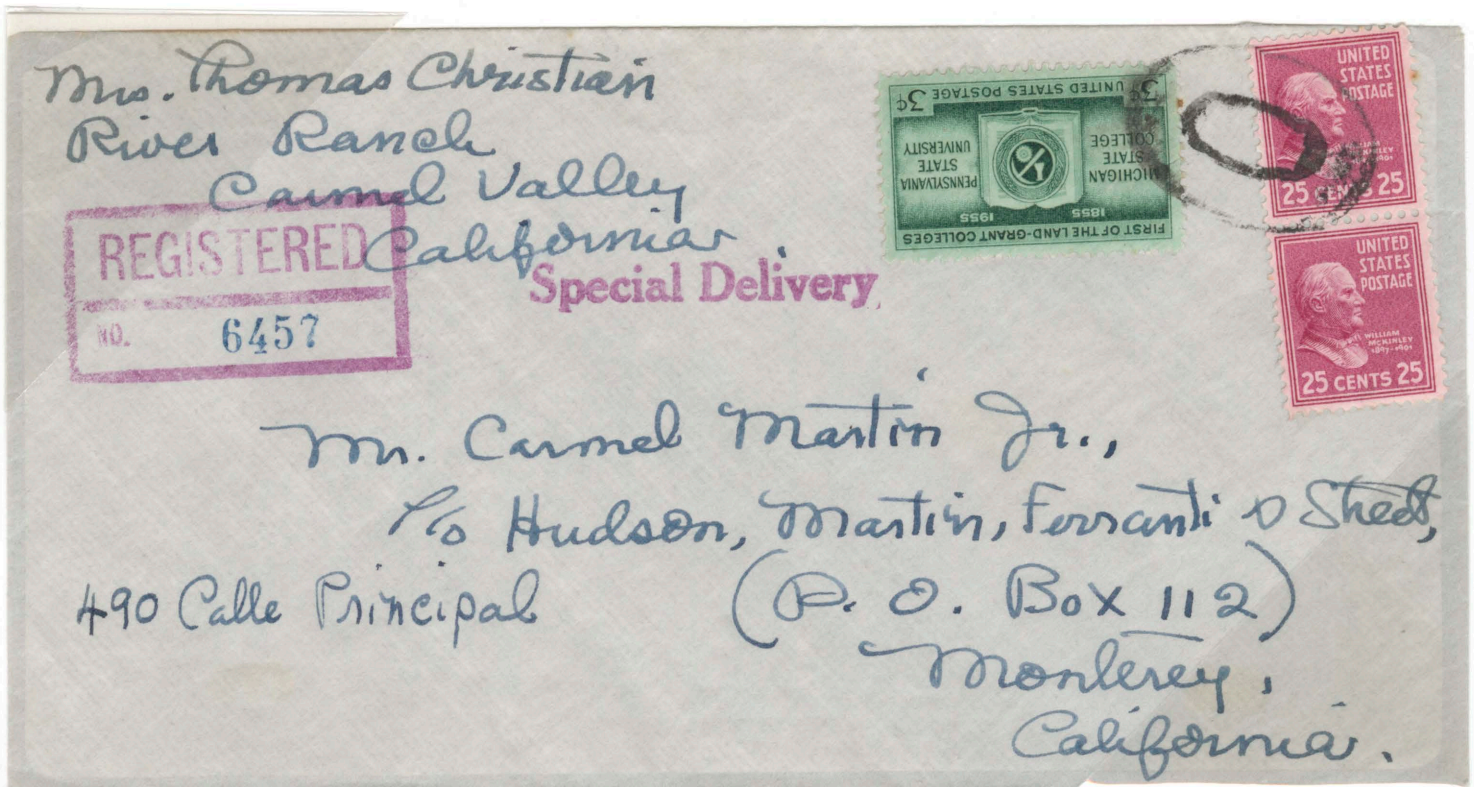 Mrs. Thomas Christian
River Ranch
Carmel Valley
California.
REGISTERED
NO. 6457
Special Delivery
FIRST OF THE LAND-GRANT COLLEGES
1855 1955
MICHIGAN STATE COLLEGE
PENNSYLVANIA STATE UNIVERSITY
3¢ UNITED STATES POSTAGE 3¢
UNITED
STATES
POSTAGE
WILLIAM
MCKINLEY
25 CENTS 25
UNITED
STATES
POSTAGE
WILLIAM
MCKINLEY
1897-1901
25 CENTS 25
Mr. Carmel Martin Jr.,
c/o Hudson, Martin, Ferranti & Street,
490 Calle Principal (P. O. Box 112)
Monterey,
California.